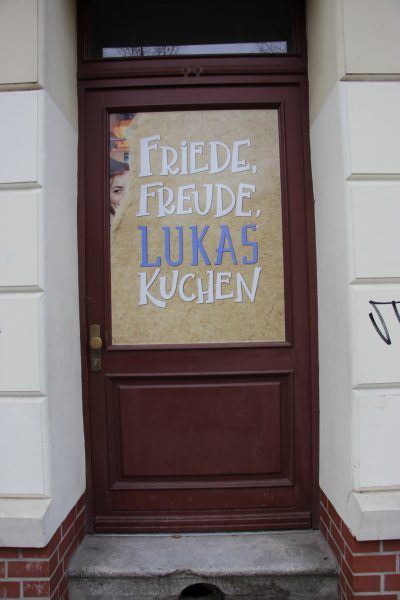 FRIEDE,
FREUDE,
LUKAS
KUCHEN